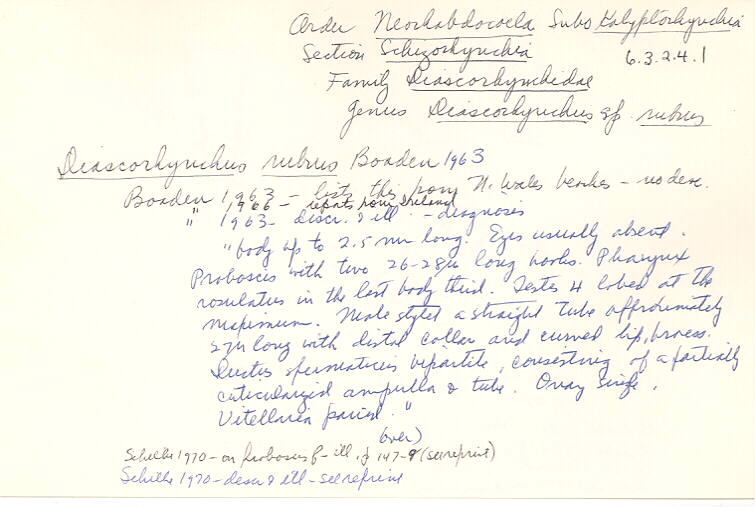 Order Neorhabdocoela Subo Kalyptorhynchia
Section Schizorhynchia 6.3.2.4.1
Family Diascorhynchidae
Genus Diascorhynchus sp. rubrus
Diascorhynchus rubrus Boaden 1963
Boaden 1963 – lists this from N. Wales beaches – no desc.
" 1966 – reports from Ireland
" 1963 – descr. & ill. – diagnosis
"body up to 2.5 mm long. Eyes usually absent.
Proboscis with two 26-28µ long hooks. Pharynx
rosulatus in the last body third. Testes 4 lobed at the
maximum. Male stylet a straight tube approximately
long with distal collar and curved lip,
Ductus spermaticus bipartite, consisting of a partially
cuticularized ampulla & tube. Ovary single.
Vitellaria paired."
(over)
Schilke 1970 – on proboscis – ill. f 147- (see reprint)
Schilke 1970 – descr & ill – see reprint